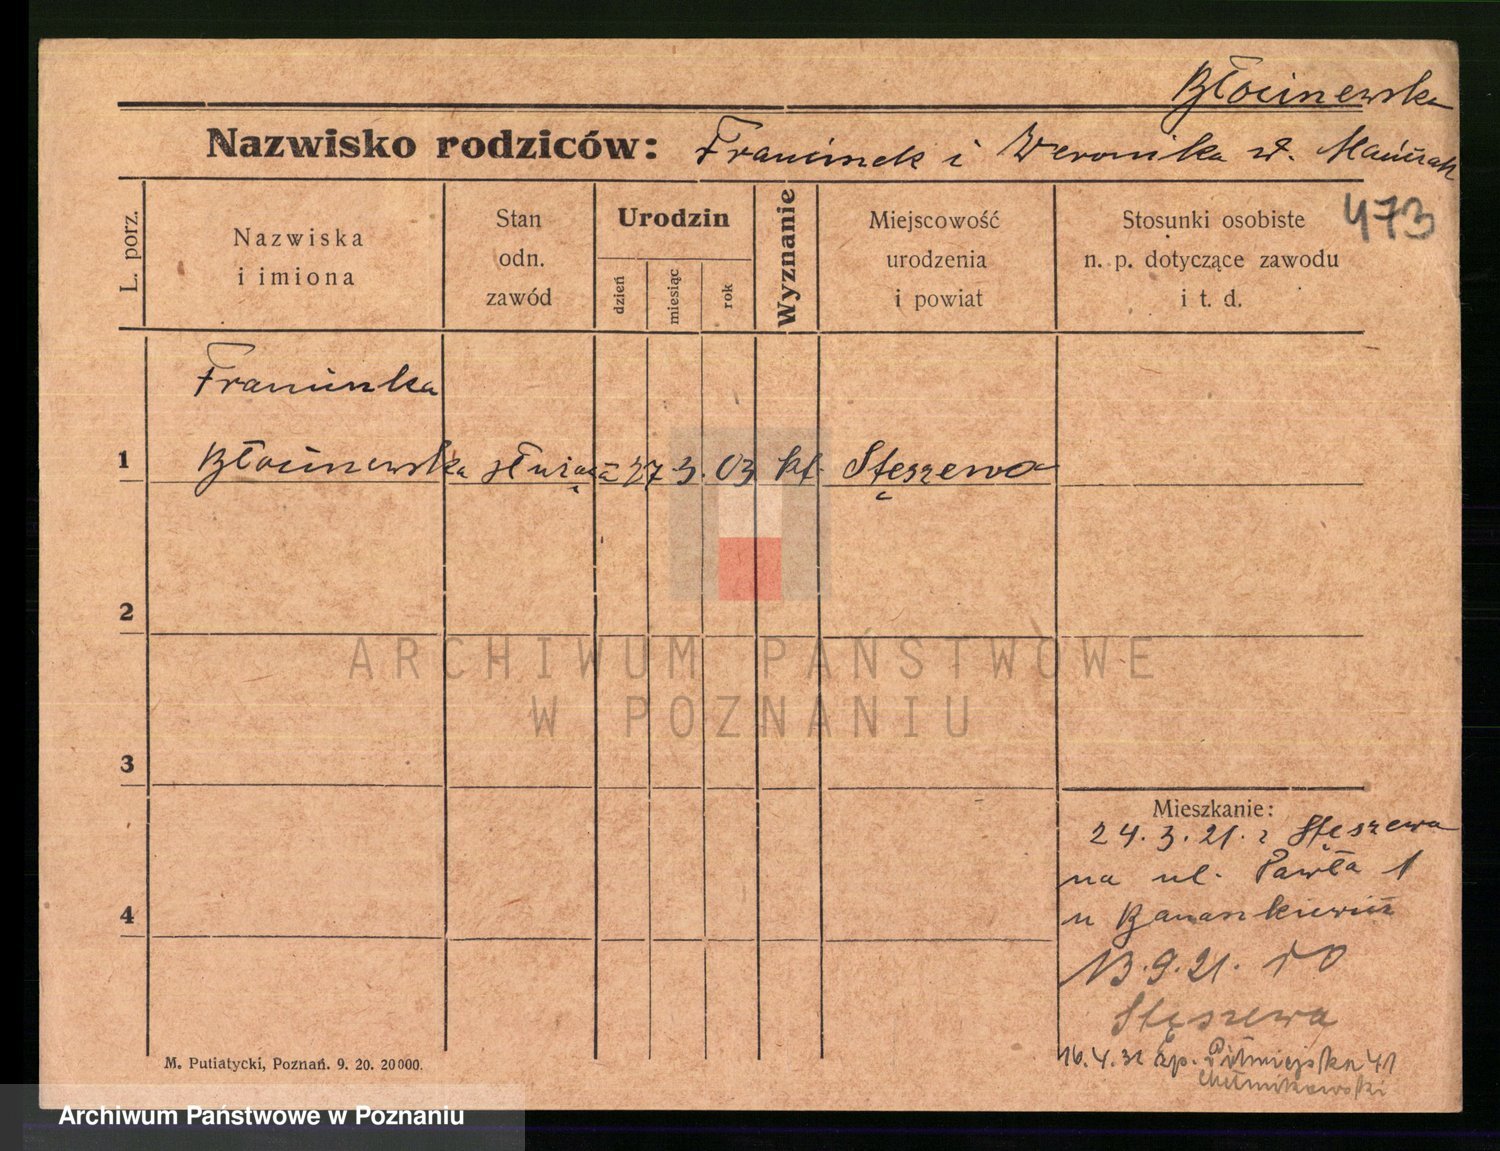 Błociszewska
Nazwisko rodziców: Franciszek i Weronika
473
L. porz.
Nazwiska
i imiona
Stan
odn.
zawód
Urodzin
dzień
miesiąc
rok
Wyznanie
Miejscowość
urodzenia
i powiat
Stosunki osobiste
n. p. dotyczące zawodu
i t. d.
Franciszka
1 Błociszewska służąca 27 3. 03 kat. Stęszewa
2
3
4
Mieszkanie:
24.3.21. z Stęszewa
na ul. Pawła 1
u Banaszkiewicz
13.9.21. do
Stęszewa
16.4.31 41
M. Putiatycki, Poznań. 9. 20. 20000.
ARCHIWUM PAŃSTWOWE
W POZNANIU
Archiwum Państwowe w Poznaniu